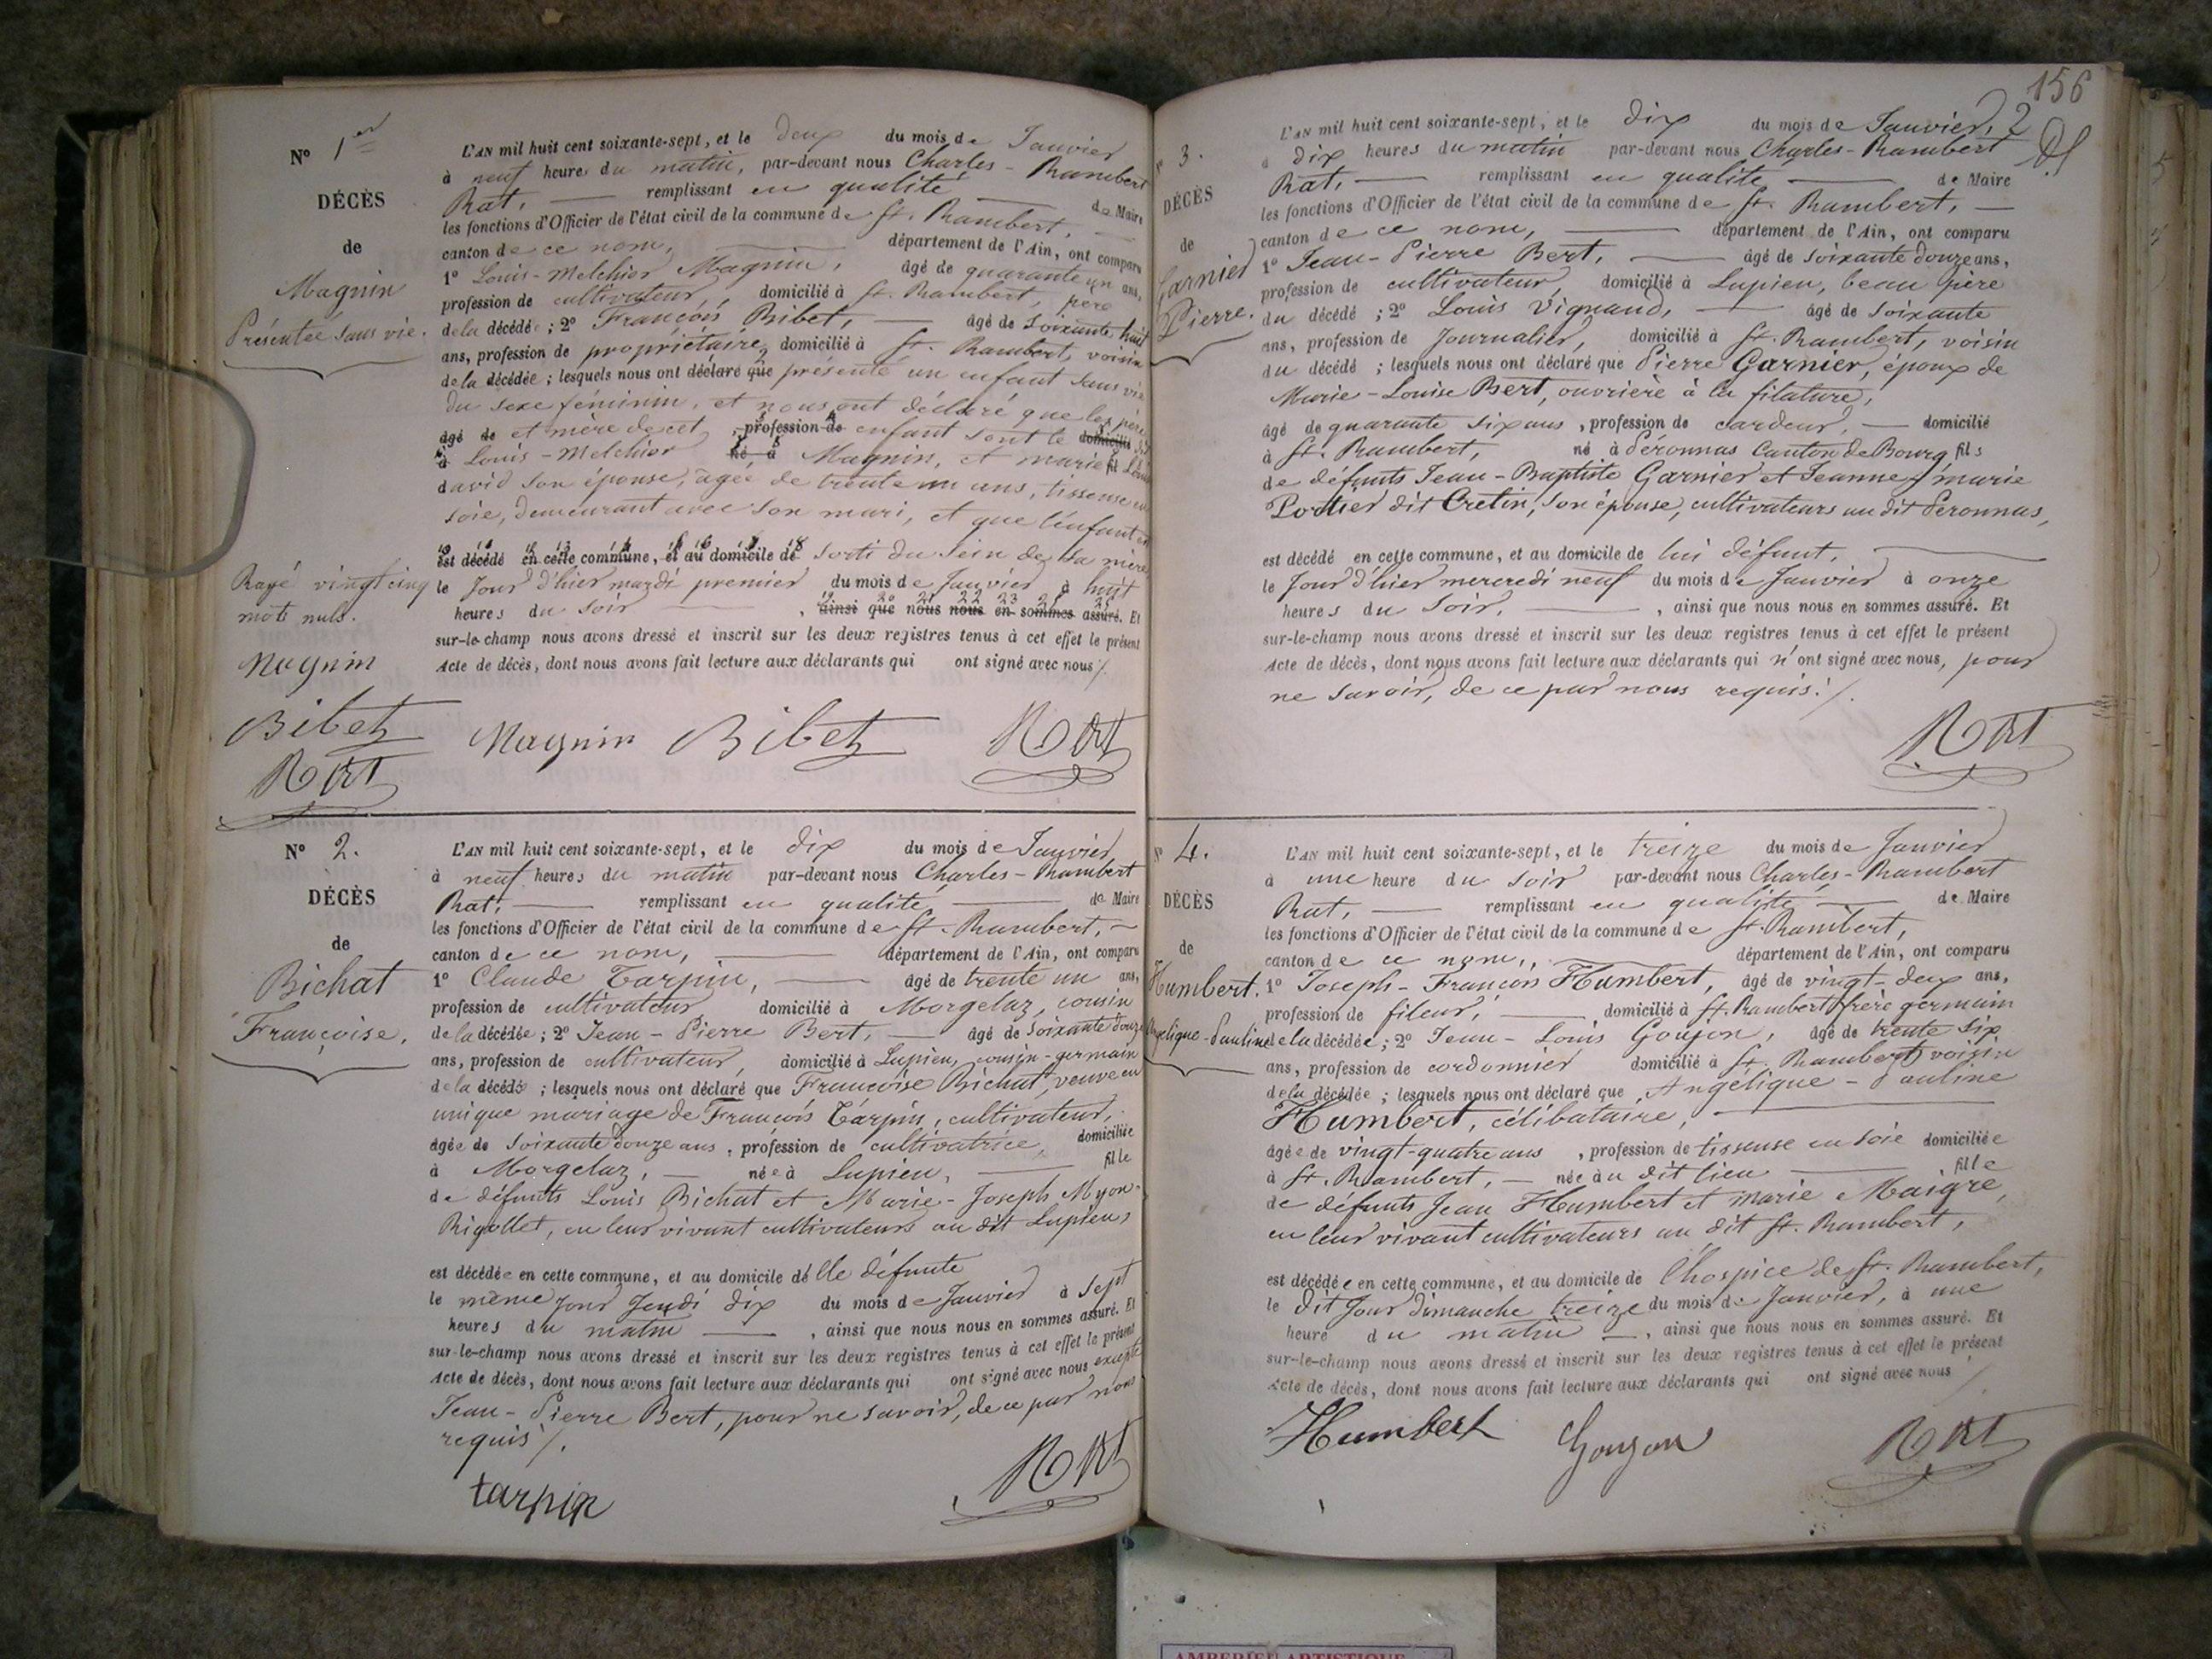 N° 1er
DÉCÈS
de
Magnin
Présentée sans vie.
L'AN mil huit cent soixante-sept, et le deux du mois de Janvier
à neuf heures du matin, par-devant nous Charles-Rambert
Rat, remplissant en qualité de Maire
les fonctions d'Officier de l'état civil de la commune de St. Rambert,
canton de ce nom, département de l'Ain, ont comparu
1° Louis-Melchior Magnin, âgé de quarante un ans,
profession de cultivateur, domicilié à St. Rambert, père
de la décédée ; 2° François Bibet, âgé de soixante huit
ans, profession de propriétaire, domicilié à St. Rambert, voisin
de la décédée ; lesquels nous ont déclaré que présenté un enfant sans vie
du sexe féminin, et nous ont déclaré que les père
âgé de et mère de cet profession de enfant sont le domicilié
à Louis-Melchior né à Magnin, et marie fil
david son épouse, agée de trente un ans, tisseuse en
soie, demeurant avec son mari, et que l'enfant
est décédé en cette commune, et au domicile de sorti du sein de sa mère
le Jour d'hier mardi premier du mois de Janvier à huit
heures du soir, ainsi que nous nous en sommes assuré. Et
sur-le-champ nous avons dressé et inscrit sur les deux registres tenus à cet effet le présent
Acte de décès, dont nous avons fait lecture aux déclarants qui ont signé avec nous /.
Rayé vingt cinq
mots nuls.
Magnin
Bibet
Rat
Magnin Bibet Rat
N° 2.
DÉCÈS
de
Bichat
Françoise.
L'AN mil huit cent soixante-sept, et le dix du mois de Janvier
à neuf heures du matin par-devant nous Charles-Rambert
Rat, remplissant en qualité de Maire
les fonctions d'Officier de l'état civil de la commune de St. Rambert,
canton de ce nom, département de l'Ain, ont comparu
1° Claude Tarpin, âgé de trente un ans,
profession de cultivateur domicilié à Morgelaz, cousin
de la décédée ; 2° Jean-Pierre Bert, âgé de soixante douze
ans, profession de cultivateur, domicilié à Lupieu, cousin-germain
de la décédée ; lesquels nous ont déclaré que Françoise Bichat, veuve en
unique mariage de François Tarpin, cultivateur,
âgée de soixante douze ans, profession de cultivatrice, domiciliée
à Morgelaz, née à Lupieu, fille
de défunts Louis Bichat et Marie-Joseph Myon-
Rigollet, en leur vivant cultivateurs au dit Lupieu,
est décédée en cette commune, et au domicile de lle défunte
le même jour Jeudi dix du mois de Janvier à sept
heures du matin, ainsi que nous nous en sommes assuré. Et
sur-le-champ nous avons dressé et inscrit sur les deux registres tenus à cet effet le présent
Acte de décès, dont nous avons fait lecture aux déclarants qui ont signé avec nous excepté
Jean-Pierre Bert, pour ne savoir, de ce par nous
requis /.
tarpin Rat
156
N° 3.
DÉCÈS
de
Garnier
Pierre.
L'AN mil huit cent soixante-sept, et le dix du mois de Janvier, 2
à dix heures du matin par-devant nous Charles-Rambert
Rat, remplissant en qualité de Maire
les fonctions d'Officier de l'état civil de la commune de St. Rambert,
canton de ce nom, département de l'Ain, ont comparu
1° Jean-Pierre Bert, âgé de soixante douze ans,
profession de cultivateur, domicilié à Lupieu, beau père
du décédé ; 2° Louis Vignand, âgé de soixante
ans, profession de Journalier, domicilié à St. Rambert, voisin
du décédé ; lesquels nous ont déclaré que Pierre Garnier, époux de
Marie-Louise Bert, ouvrière à la filature,
âgé de quarante six ans, profession de cardeur, domicilié
à St. Rambert, né à Péronnas Canton de Bourg fils
de défunts Jean-Baptiste Garnier et Jeanne marie
Portier dit Cretin, son épouse, cultivateurs au dit Peronnas,
est décédé en cette commune, et au domicile de lui défunt,
le Jour d'hier mercredi neuf du mois de Janvier à onze
heures du Soir, ainsi que nous nous en sommes assuré. Et
sur-le-champ nous avons dressé et inscrit sur les deux registres tenus à cet effet le présent
Acte de décès, dont nous avons fait lecture aux déclarants qui n'ont signé avec nous, pour
ne savoir, de ce par nous requis. /.
Rat
N° 4.
DÉCÈS
de
Humbert.
Angélique-Pauline
L'AN mil huit cent soixante-sept, et le treize du mois de Janvier
à une heure du soir par-devant nous Charles-Rambert
Rat, remplissant en qualité de Maire
les fonctions d'Officier de l'état civil de la commune de St. Rambert,
canton de ce nom, département de l'Ain, ont comparu
1° Joseph-François Humbert, âgé de vingt-deux ans,
profession de fileur, domicilié à St. Rambert frère germain
de la décédée ; 2° Jean-Louis Goujon, âgé de trente six
ans, profession de cordonnier domicilié à St. Rambert, voisin
de la décédée ; lesquels nous ont déclaré que Angélique-Pauline
Humbert, célibataire,
âgée de vingt-quatre ans, profession de tisseuse en soie domiciliée
à St. Rambert, née au dit lieu fille
de défunts Jean Humbert et Marie Maigre,
en leur vivant cultivateurs au dit St. Rambert,
est décédée en cette commune, et au domicile de l'hospice de St. Rambert,
le dit Jour dimanche treize du mois de Janvier, à une
heure du matin, ainsi que nous nous en sommes assuré. Et
sur-le-champ nous avons dressé et inscrit sur les deux registres tenus à cet effet le présent
Acte de décès, dont nous avons fait lecture aux déclarants qui ont signé avec nous /
Humbert Goujon Rat
AMBERIEU ARTISTIQUE